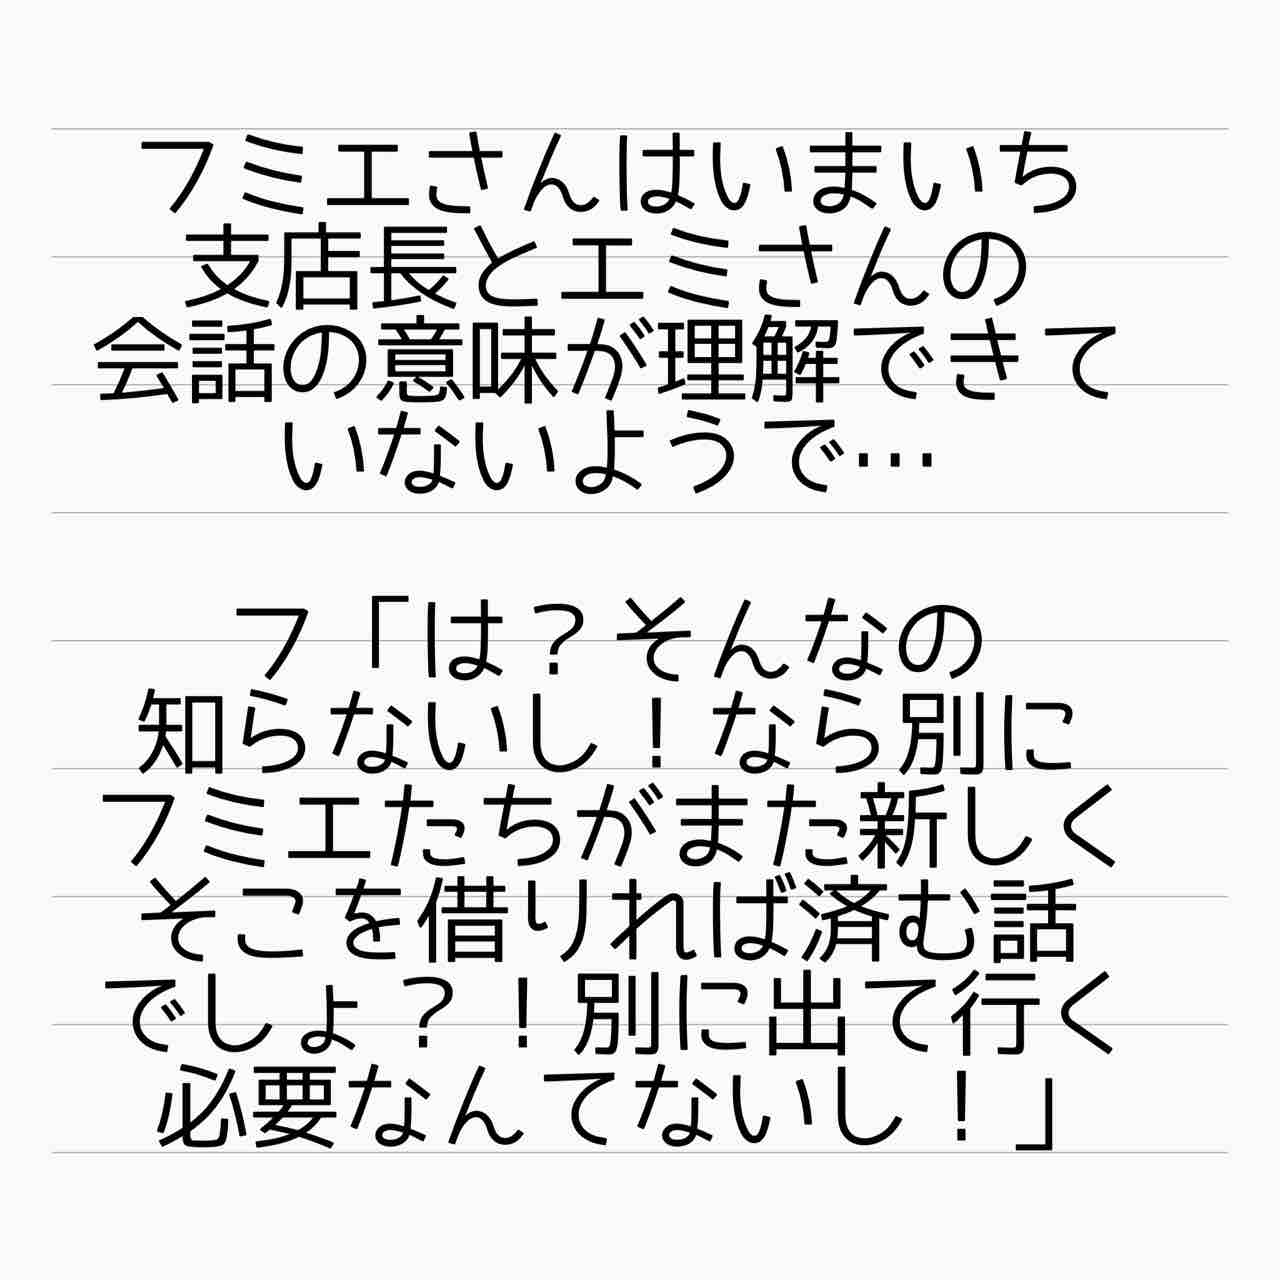 フミエさんはいまいち
支店長とエミさんの
会話の意味が理解できて
いないようで…
フ「は？そんなの
知らないし！なら別に
フミエたちがまた新しく
そこを借りれば済む話
でしょ？！別に出て行く
必要なんてないし！」